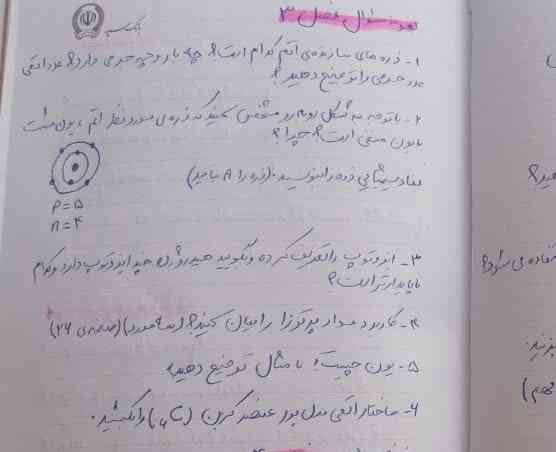 نمونه سؤال فصل ۳
۱- ذره های سازنده ی اتم کدام است؟ چه بار و چه جرمی دارد؟ عدد اتمی
عدد جرمی را توضیح دهید؟
۲- با توجه به شکل روبه رو مشخص کنید که ذره ی مورد نظر اتم، یون مثبت
یا یون منفی است؟ چرا؟
نماد شیمیایی ذره را بنویسید. (ذره را A بنامید)
P = ۵
n = ۴
۳- ایزوتوپ را تعریف کرده و بگویید هیدروژن چند ایزوتوپ دارد و کدام
ناپایدارتر است؟
۴- کاربرد مواد پرتوزا را بیان کنید؟ (مورد) (صفحه ی ۲۶)
۵- یون چیست؟ با مثال توضیح دهید
۶- ساختار اتمی مدل بور عنصر کربن را بکشید.
هید؟
تفاده می شود؟